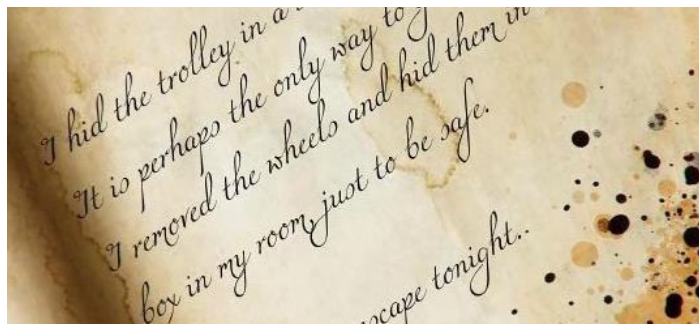 I hid the trolley in a
It is perhaps the only way to
I removed the wheels and hid them in
box in my room, just to be safe.
tonight..